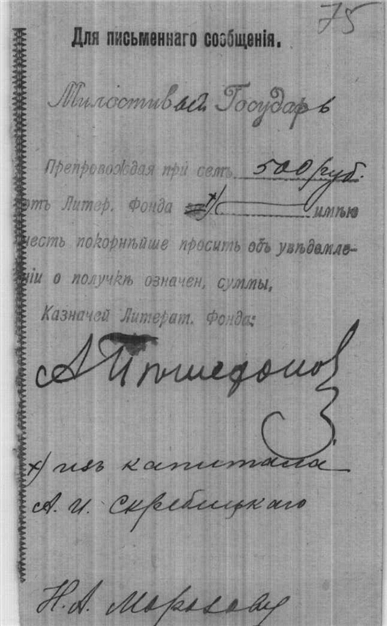 75
Для письменнаго сообщенія.
Милостивый Государь
Препровождая при семъ 500 руб.
отъ Литер. Фонда x) имѣю
честь покорнѣйше просить объ увѣдомле-
ніи о получкѣ означен, суммы,
Казначей Литерат. Фонда:
x) изъ капитала
А. И. Скребицкаго
Н. А. Морозову